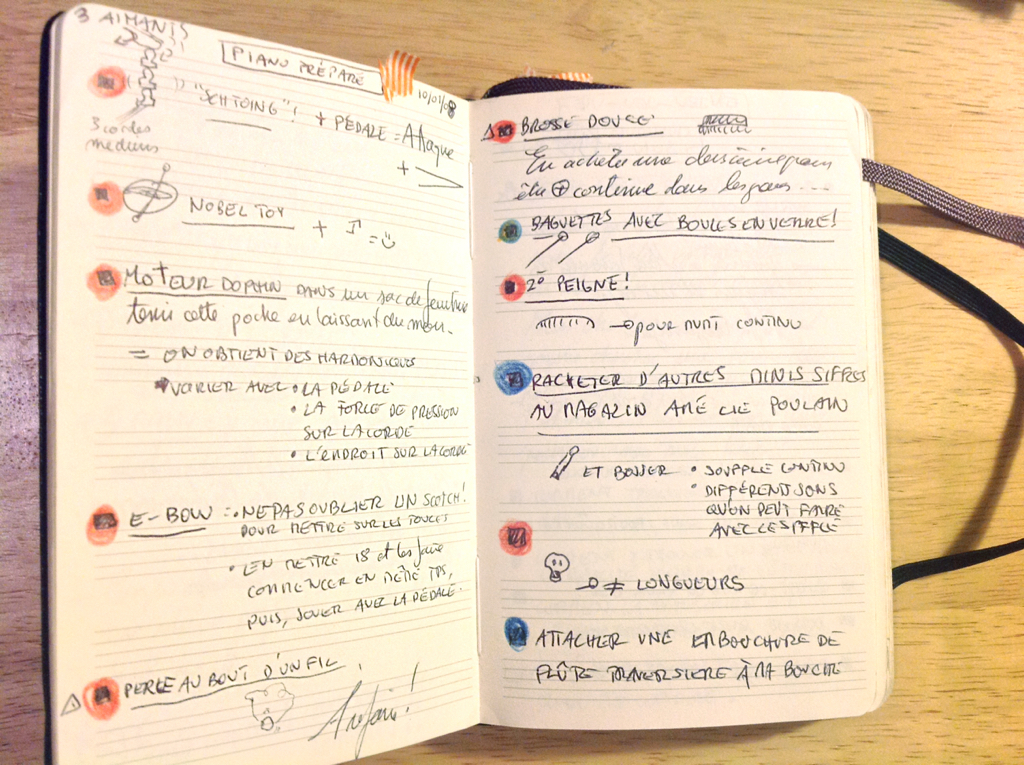 3 AIMANTS
PIANO PRÉPARÉ
10/01/08
"SCHTOING"! + PÉDALE = Attaque
+
3 cordes
mediums
NOBEL TOY + =
MOTEUR DOPHIN DANS un sac de
tenir cette poche en laissant du mou.
= ON OBTIENT DES HARMONIQUES
VARIER AVEC • LA PÉDALE
• LA FORCE DE PRESSION
SUR LA CORDE
• L'ENDROIT SUR LA CORDE
E-BOW = • NE PAS OUBLIER UN SCOTCH!
POUR METTRE SUR LES TOUCES
• EN METTRE 18 et les faire
COMMENCER EN MÊME TPS,
PUIS, JOUER AVEC LA PÉDALE.
PERLE AU BOUT D'UN FIL
A refaire!
BROSSE DOUCE
En acheter une dernière pour
être + continue dans les
BAGUETTES AVEC BOULES EN VERRE!
2º PEIGNE!
POUR NUIT CONTINU
RACHETER D'AUTRES MINIS SIFFLES
AU MAGAZIN AMÉLIE POULAIN
ET BOSSER • SOUFFLE CONTINU
• DIFFÉRENT SONS
QU'ON PEUT FAIRE
AVEC CE SIFFLÉ
≠ LONGUEURS
ATTACHER UNE EMBOUCHURE DE
FLÛTE TRAVERSIERE À MA BOUCHE